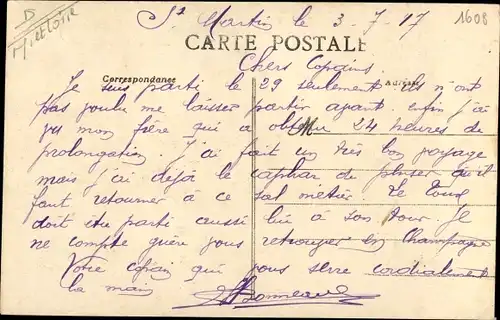 D
M et Loire
1608
St Martin le 3-7-17
CARTE POSTALE
Chers Copains
Correspondance
Adresse
Je suis parti le 29 seulement ils n'ont
pas voulu me laisser partir avant. enfin j'ai
vu mon frère qui a obtenu 24 heures de
prolongation. J'ai fait un très bon voyage
mais j'ai déjà le caphar de penser qu'il
faut retourner à ce sal métier. Le
doit être parti aussi lui à son tour. Je
ne compte guère vous retrouver en Champagne
Votre copain qui vous serre cordialement
la main
Bonneau